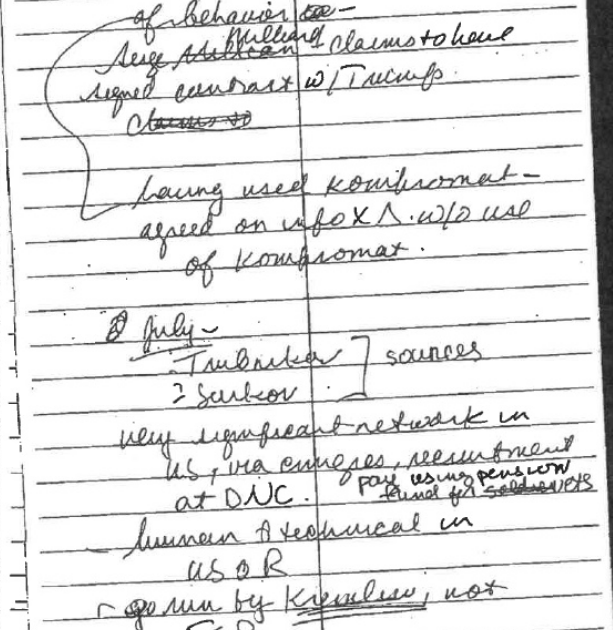 of behavior –
Millian
Serge Millian claims to have
signed contract w/ Trump.
Claims to
having used kompromat –
agreed on info X. w/o use
of kompromat.
July –
Trubnikov ] sources
? Surkov
very significant network in
US, via emigres, recruitment
at DNC. pay using pension
fund for soldiers vets
– human & technical in
US & R
– op run by Kremlin, not